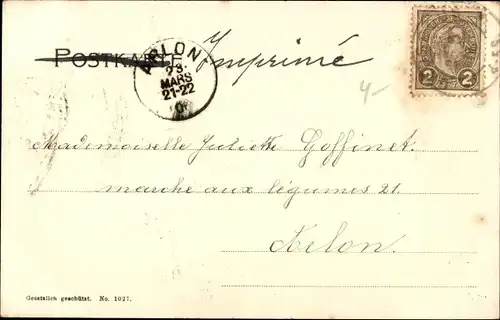 POSTKARTE Imprimé
ARLON
23
MARS
21-22
2 2
4-
Mademoiselle Juliette Goffinet.
marché aux légumes 21.
Arlon.
Gesetzlich geschützt. No. 1027.